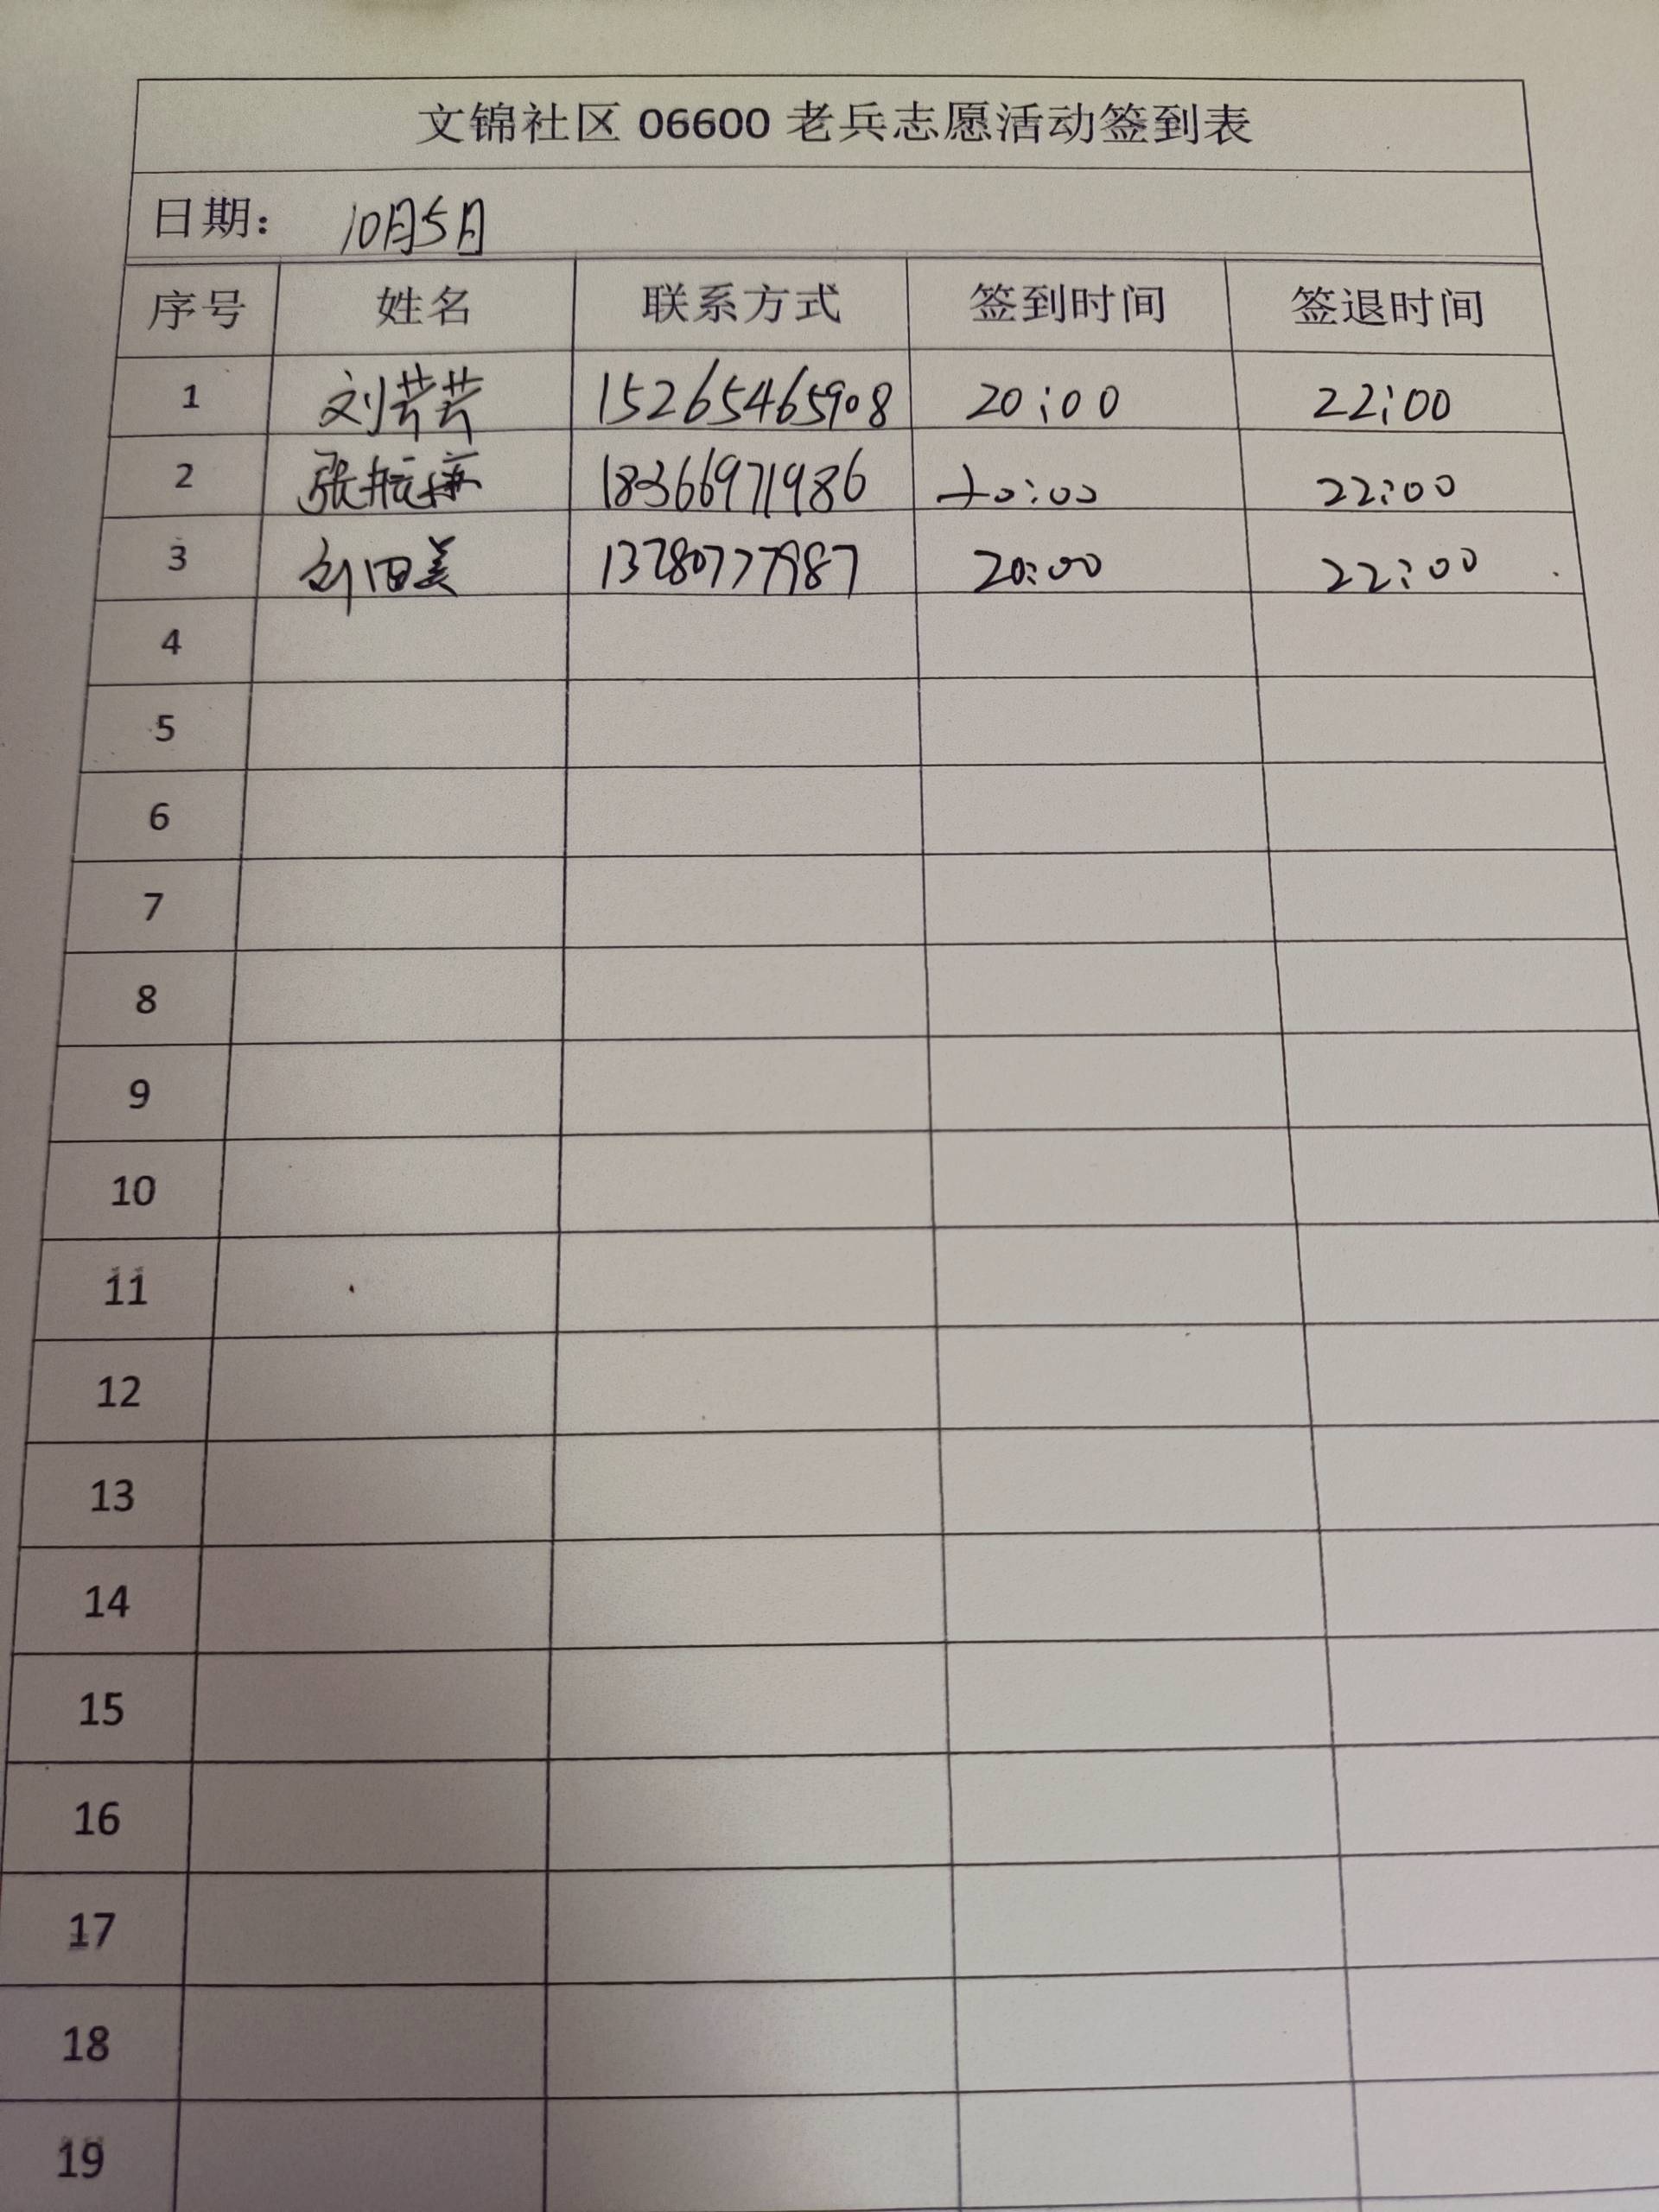 文锦社区 06600 老兵志愿活动签到表
日期： 10月5日
序号 姓名 联系方式 签到时间 签退时间
1 刘芸芸 15265465908 20:00 22:00
2 张 18366971986 20:00 22:00
3 刘田美 13780777987 20:00 22:00
4
5
6
7
8
9
10
11
12
13
14
15
16
17
18
19